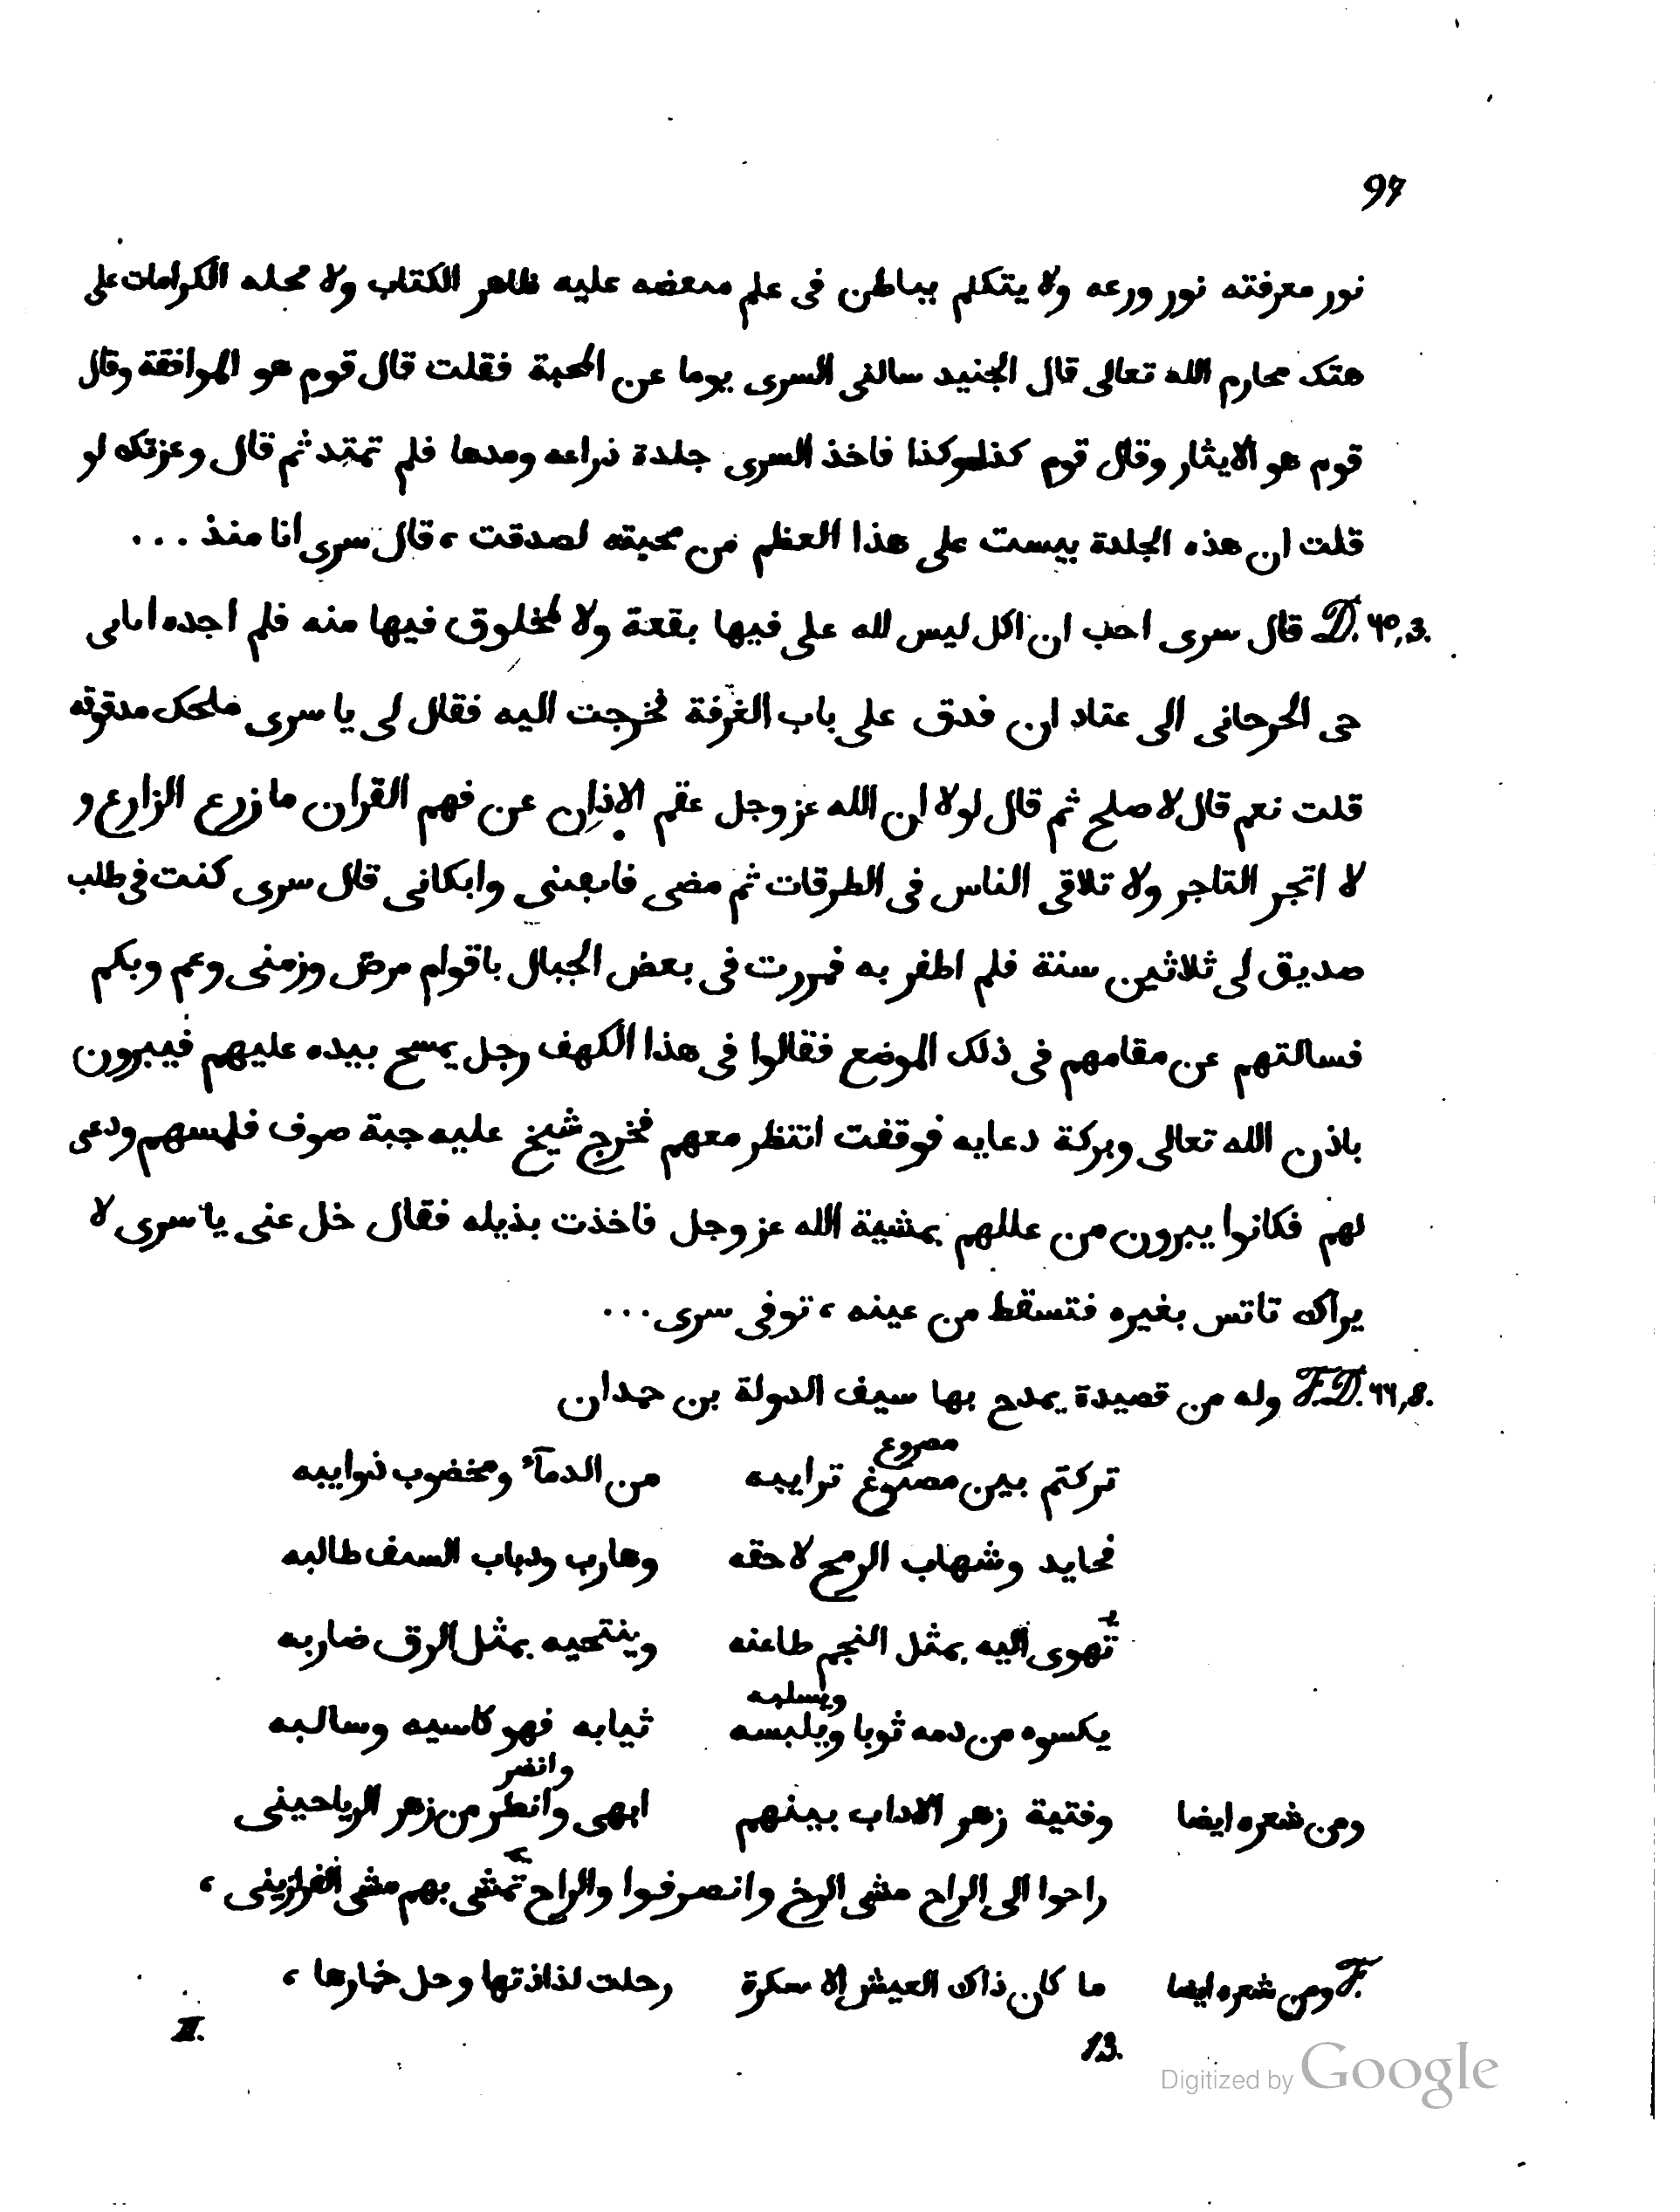 97
نور معرفته نور ورعه ولا يتكلم بباطن فى علم ىىعضه عليه ظاهر الكتاب ولا محله الكرامات على
هتك محارم الله تعالى قال الجنيد سالنى السرى يوما عن المحبة فقلت قال قوم هو الموافقة وقال
قوم هو الايثار وقال قوم كذا وكذا فاخذ السرى جلدة ذراعه ومدها فلم تمتد ثم قال وعزتك لو
قلت ان هذه الجلدة يبست على هذا العظم من محبته لصدقت ، قال سرى انا منذ ...
D. 40,3. قال سرى احب ان اكل ليس لله على فيها بقعة ولا لمخلوق فيها منه فلم اجده اىاىى
حى الحرحانى الى عتاد ان فدق على باب الغرفة فخرجت اليه فقال لى يا سرى ملحك مدقوقه
قلت نعم قال لا صلح ثم قال لولا ان الله عز وجل عقم الاذان عن فهم القران ما زرع الزارع و
لا اتجر التاجر ولا تلاقى الناس فى الطرقات ثم مضى فاىعبنى وابكانى قال سرى كنت فى طلب
صديق لى ثلاثين سنة فلم اظفر به فمررت فى بعض الجبال باقوام مرضى وزمنى وعم وبكم
فسالتهم عن مقامهم فى ذلك الموضع فقالوا فى هذا الكهف رجل يمسح بيده عليهم فيبرون
باذن الله تعالى وبركة دعايه فوقفت انتظر معهم فخرج شيخ عليه جبة صوف فلمسهم ودعى
لهم فكانوا يبرون من عللهم بمشية الله عز وجل فاخذت بذيله فقال خل عنى يا سرى لا
يراك تانس بغيره فتسقط من عينه ، توفى سرى ...
F.D. 44,8. وله من قصيدة يمدح بها سيف الدولة بن حمدان
مصروع
تركتم بين مصبوغ ترايبه من الدمآء ومخضوب ذوايبه
فحايد وشهاب الرمح لاحقه وهارب وذباب السيف طالبه
تهوى اليه بمثل النجم طاعنه وينتحيه بمثل البرق ضاربه
ويسلبه
يكسوه من دمه ثوبا ويلبسه ثيابه فهو كاسيه وسالبه
وانضر
ومن شعره ايضا وفتية زهر الاداب بينهم ابهى وانظر من زهر الرياحينى
راحوا الى الراح مشى الرخ وانصرفوا والراح تمشى بهم مشى الفرازينى ،
F. ومن شعره ايضا ما كان ذاك العيش الا سكرة رحلت لذاذتها وحل خمارها ،
II. 13.
Digitized by Google